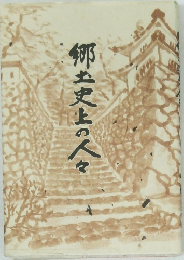 郷土史上の人々